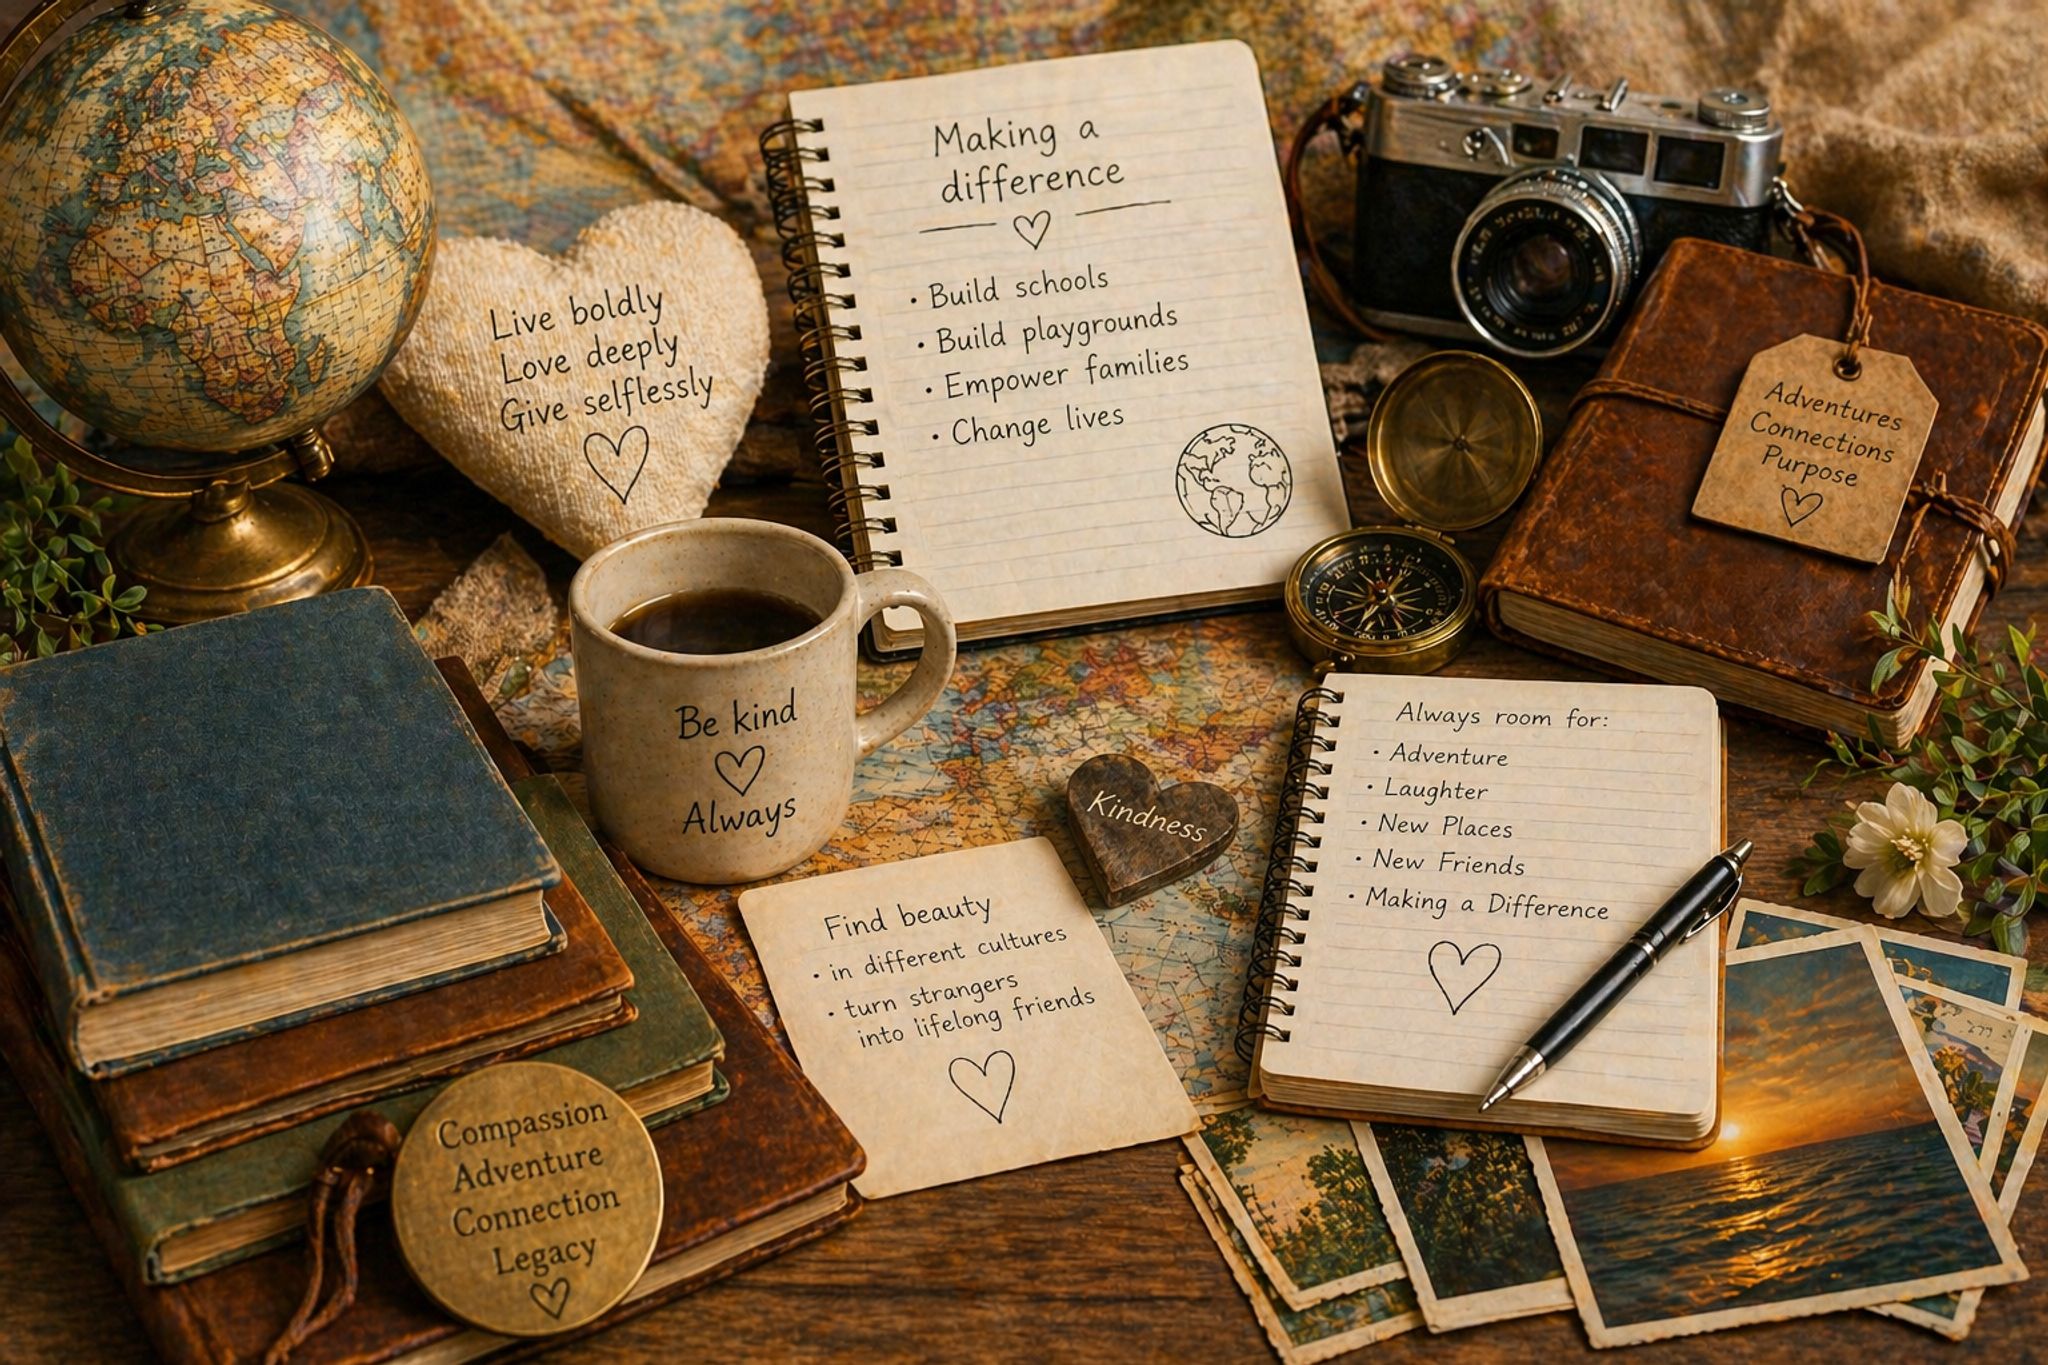 Live boldly
Love deeply
Give selflessly
Making a
difference
• Build schools
• Build playgrounds
• Empower families
• Change lives
Adventures
Connections
Purpose
Be kind
Always
Kindness
Always room for:
• Adventure
• Laughter
• New Places
• New Friends
• Making a Difference
Find beauty
• in different cultures
• turn strangers
into lifelong friends
Compassion
Adventure
Connection
Legacy